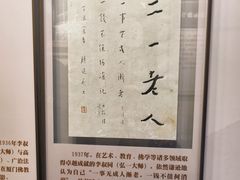 二一老人
一事無成人漸老
一錢不值何消說
1936年李叔
大师）与高
、广洽法
在厦门佛
1937年，在艺术、教育、佛学等诸多领域取
得卓越成就的李叔同（弘一大师），依然谦逊地
认为自己“一事无成人渐老，一钱不值何消